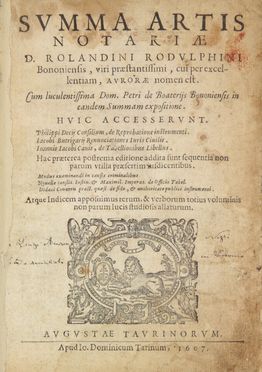 SVMMA ARTIS
NOTARIÆ
D. ROLANDINI RODVLPHINI
Bononiensis, viri præstantissimi, cui per excel-
lentiam, AVRORÆ nomen est.
Cum luculentissima Dom. Petri de Boaterijs Bononiensis in
eandem Summam expositione.
HVIC ACCESSERVNT.
Philippi Decij Consilium, de Reprobatione instrumenti.
Iacobi Butrigarij Renuntiationes Iuris Ciuilis.
Ioannis Iacobi Canis, de Tabellionibus Libellus.
Hac præterea postrema editione addita sunt sequentia non
parum vtilia præsertim iudicentibus.
Modus examinandi in causis criminalibus
Atque Indicem apposuimus rerum, & verborum totius voluminis
non parum lucis studiosis allaturum.
AVGVSTAE TAVRINORVM.
Apud Io. Dominicum Tarinum, 1607.